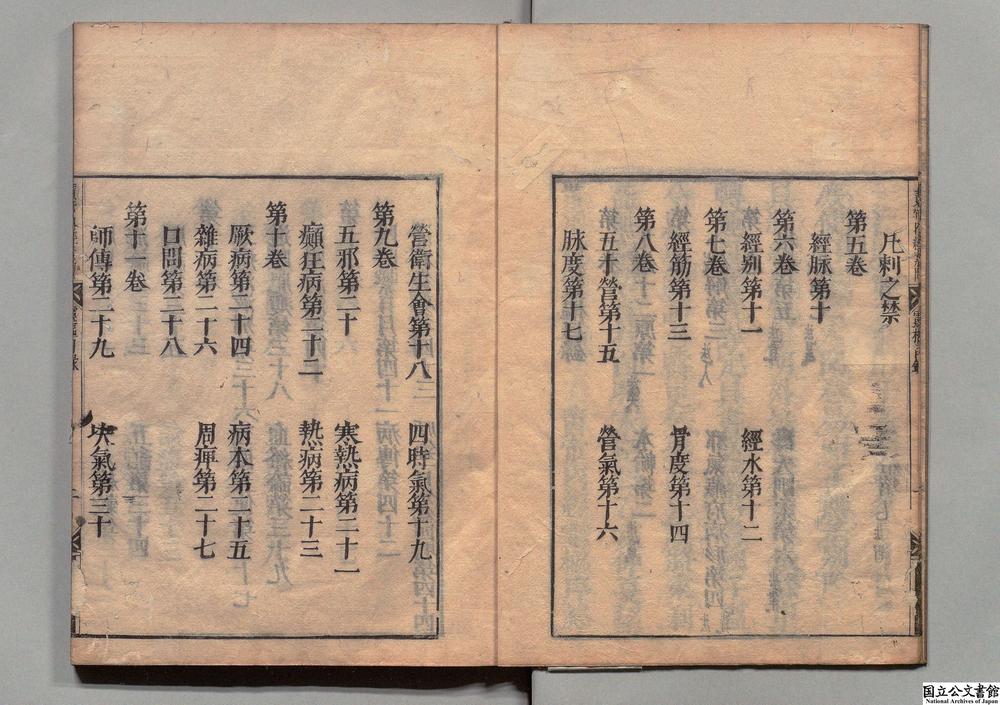 凡刺之禁
第五卷
經脉第十
第六卷
經别第十一　經水第十二
第七卷
經筋第十三　骨度第十四
第八卷
五十營第十五　營氣第十六
脉度第十七
營衛生會第十八　四時氣第十九
第九卷
五邪第二十　寒熱病第二十一
癲狂病第二十二　熱病第二十三
第十卷
厥病第二十四　病本第二十五
雜病第二十六　周痺第二十七
口問第二十八
第十一卷
師傳第二十九　决氣第三十
国立公文書館
National Archives of Japan